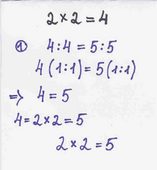 2×2=4
① 4:4=5:5
4(1:1)=5(1:1)
⇒ 4=5
4=2×2=5
2×2=5